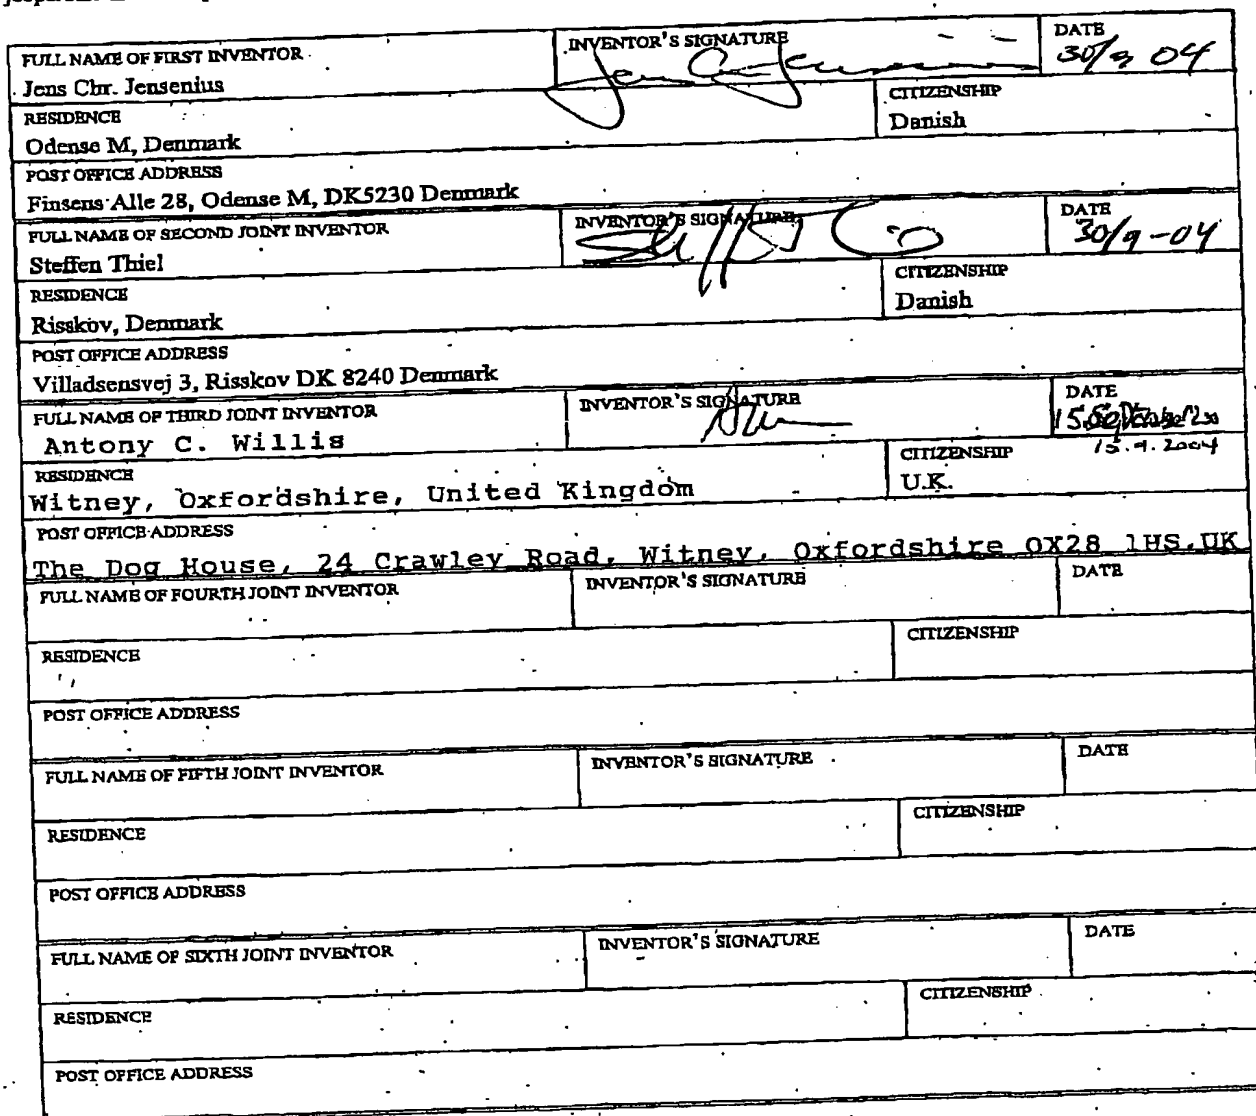 FULL NAME OF FIRST INVENTOR INVENTOR'S SIGNATURE DATE
Jens Chr. Jensenius 30/9 04
RESIDENCE CITIZENSHIP
Odense M, Denmark Danish
POST OFFICE ADDRESS
Finsens Alle 28, Odense M, DK5230 Denmark
FULL NAME OF SECOND JOINT INVENTOR INVENTOR'S SIGNATURE DATE
Steffen Thiel 30/9-04
RESIDENCE CITIZENSHIP
Risskov, Denmark Danish
POST OFFICE ADDRESS
Villadsensvej 3, Risskov DK 8240 Denmark
FULL NAME OF THIRD JOINT INVENTOR INVENTOR'S SIGNATURE DATE
Antony C. Willis
15.9.2004
RESIDENCE CITIZENSHIP
Witney, Oxfordshire, United Kingdom U.K.
POST OFFICE ADDRESS
The Dog House, 24 Crawley Road, Witney, Oxfordshire OX28 1HS, UK
FULL NAME OF FOURTH JOINT INVENTOR INVENTOR'S SIGNATURE DATE
RESIDENCE CITIZENSHIP
POST OFFICE ADDRESS
FULL NAME OF FIFTH JOINT INVENTOR INVENTOR'S SIGNATURE DATE
RESIDENCE CITIZENSHIP
POST OFFICE ADDRESS
FULL NAME OF SIXTH JOINT INVENTOR INVENTOR'S SIGNATURE DATE
RESIDENCE CITIZENSHIP
POST OFFICE ADDRESS